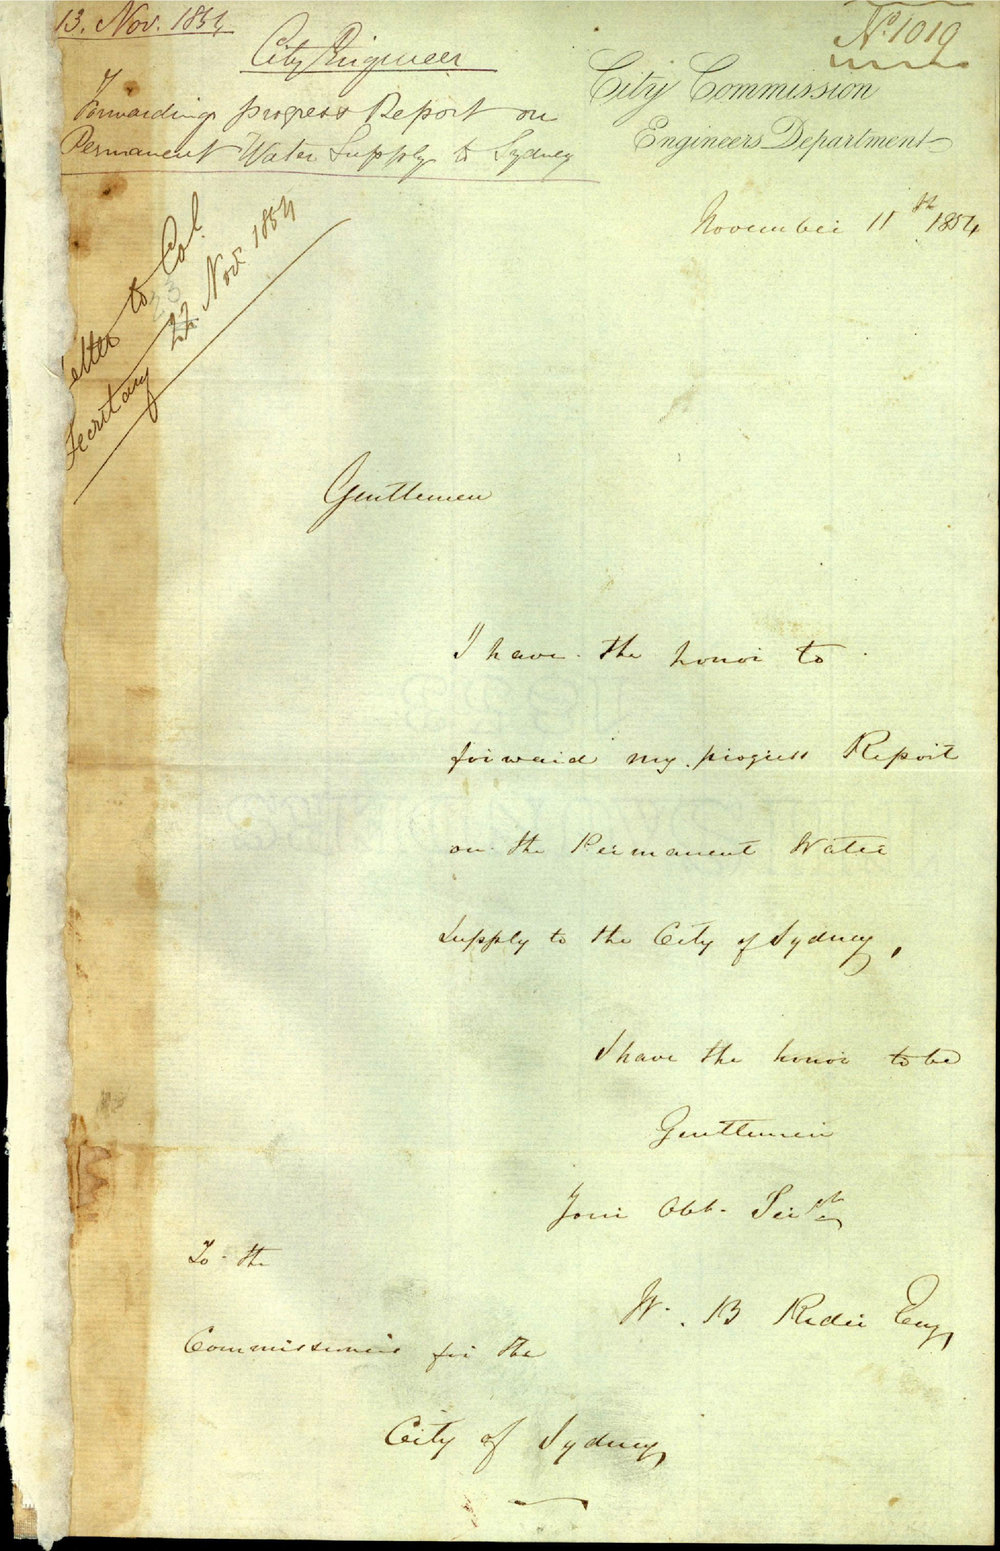 13. Nov. 1854
City Engineer
Forwarding progress Report on
Permanent Water Supply to Sydney
No. 1019
City Commission
Engineers Department
November 11th 1854
Letter to Col.
Secretary 23 Nov. 1854
Gentlemen
I have the honor to
forward my progress Report
on the Permanent Water
Supply to the City of Sydney,
I have the honor to be
Gentlemen
Your Obt. Servt
W. B Rider Eng,
To the
Commissioners for the
City of Sydney,